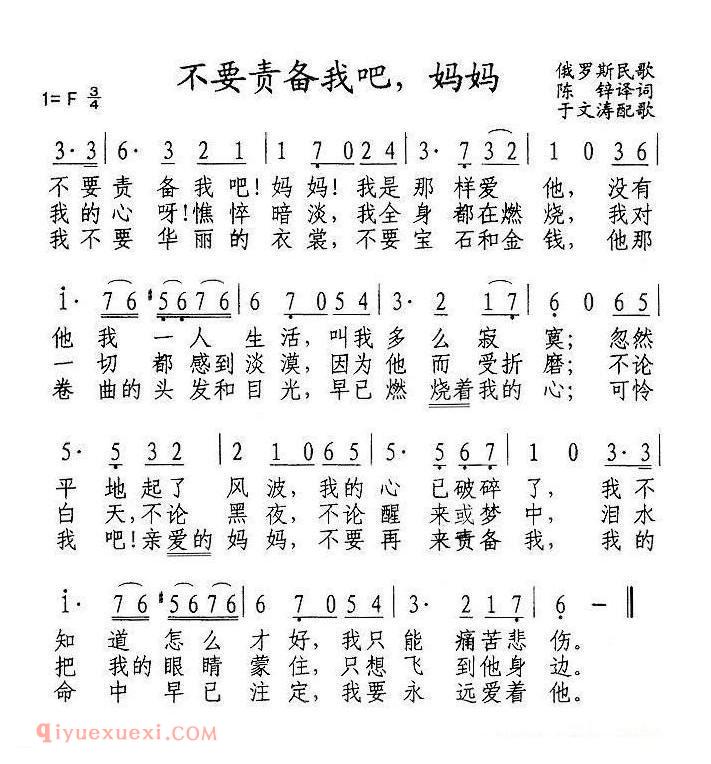 不要责备我吧，妈妈
1=F 3/4
俄罗斯民歌
陈 锌译词
于文涛配歌
3·3|6· 3 2 1|1 7 024|3· 7 32|1 0 36|
不要责 备我吧！妈妈！我是那 样爱 他，没有
我的心 呀！憔悴暗淡，我全身 都在燃 烧，我对
我不要 华丽的衣 裳，不要宝 石和金 钱，他那
i· 76|#5676|6 7 054|3· 2 17|6 0 65|
他 我 一人 生活，叫我多 么寂 寞；忽然
一切 都感到淡漠，因为他 而受折 磨；不论
卷 曲的头发和目光，早已燃 烧着我的心；可怜
5· 5 32|2 1065|5· 567|1 0 3·3|
平 地起了 风波，我的心 已破碎了，我不
白 天，不论 黑夜，不论醒 来或梦中，泪水
我 吧！亲爱的妈妈，不要再 来责备我，我的
i· 76|#5676|6 7054|3· 217|6 －‖
知 道怎么才好，我只能 痛苦悲伤。
把 我的眼睛蒙住，只想飞 到他身边。
命 中早已注定，我要永 远爱着他。
qiyuexuexi.com